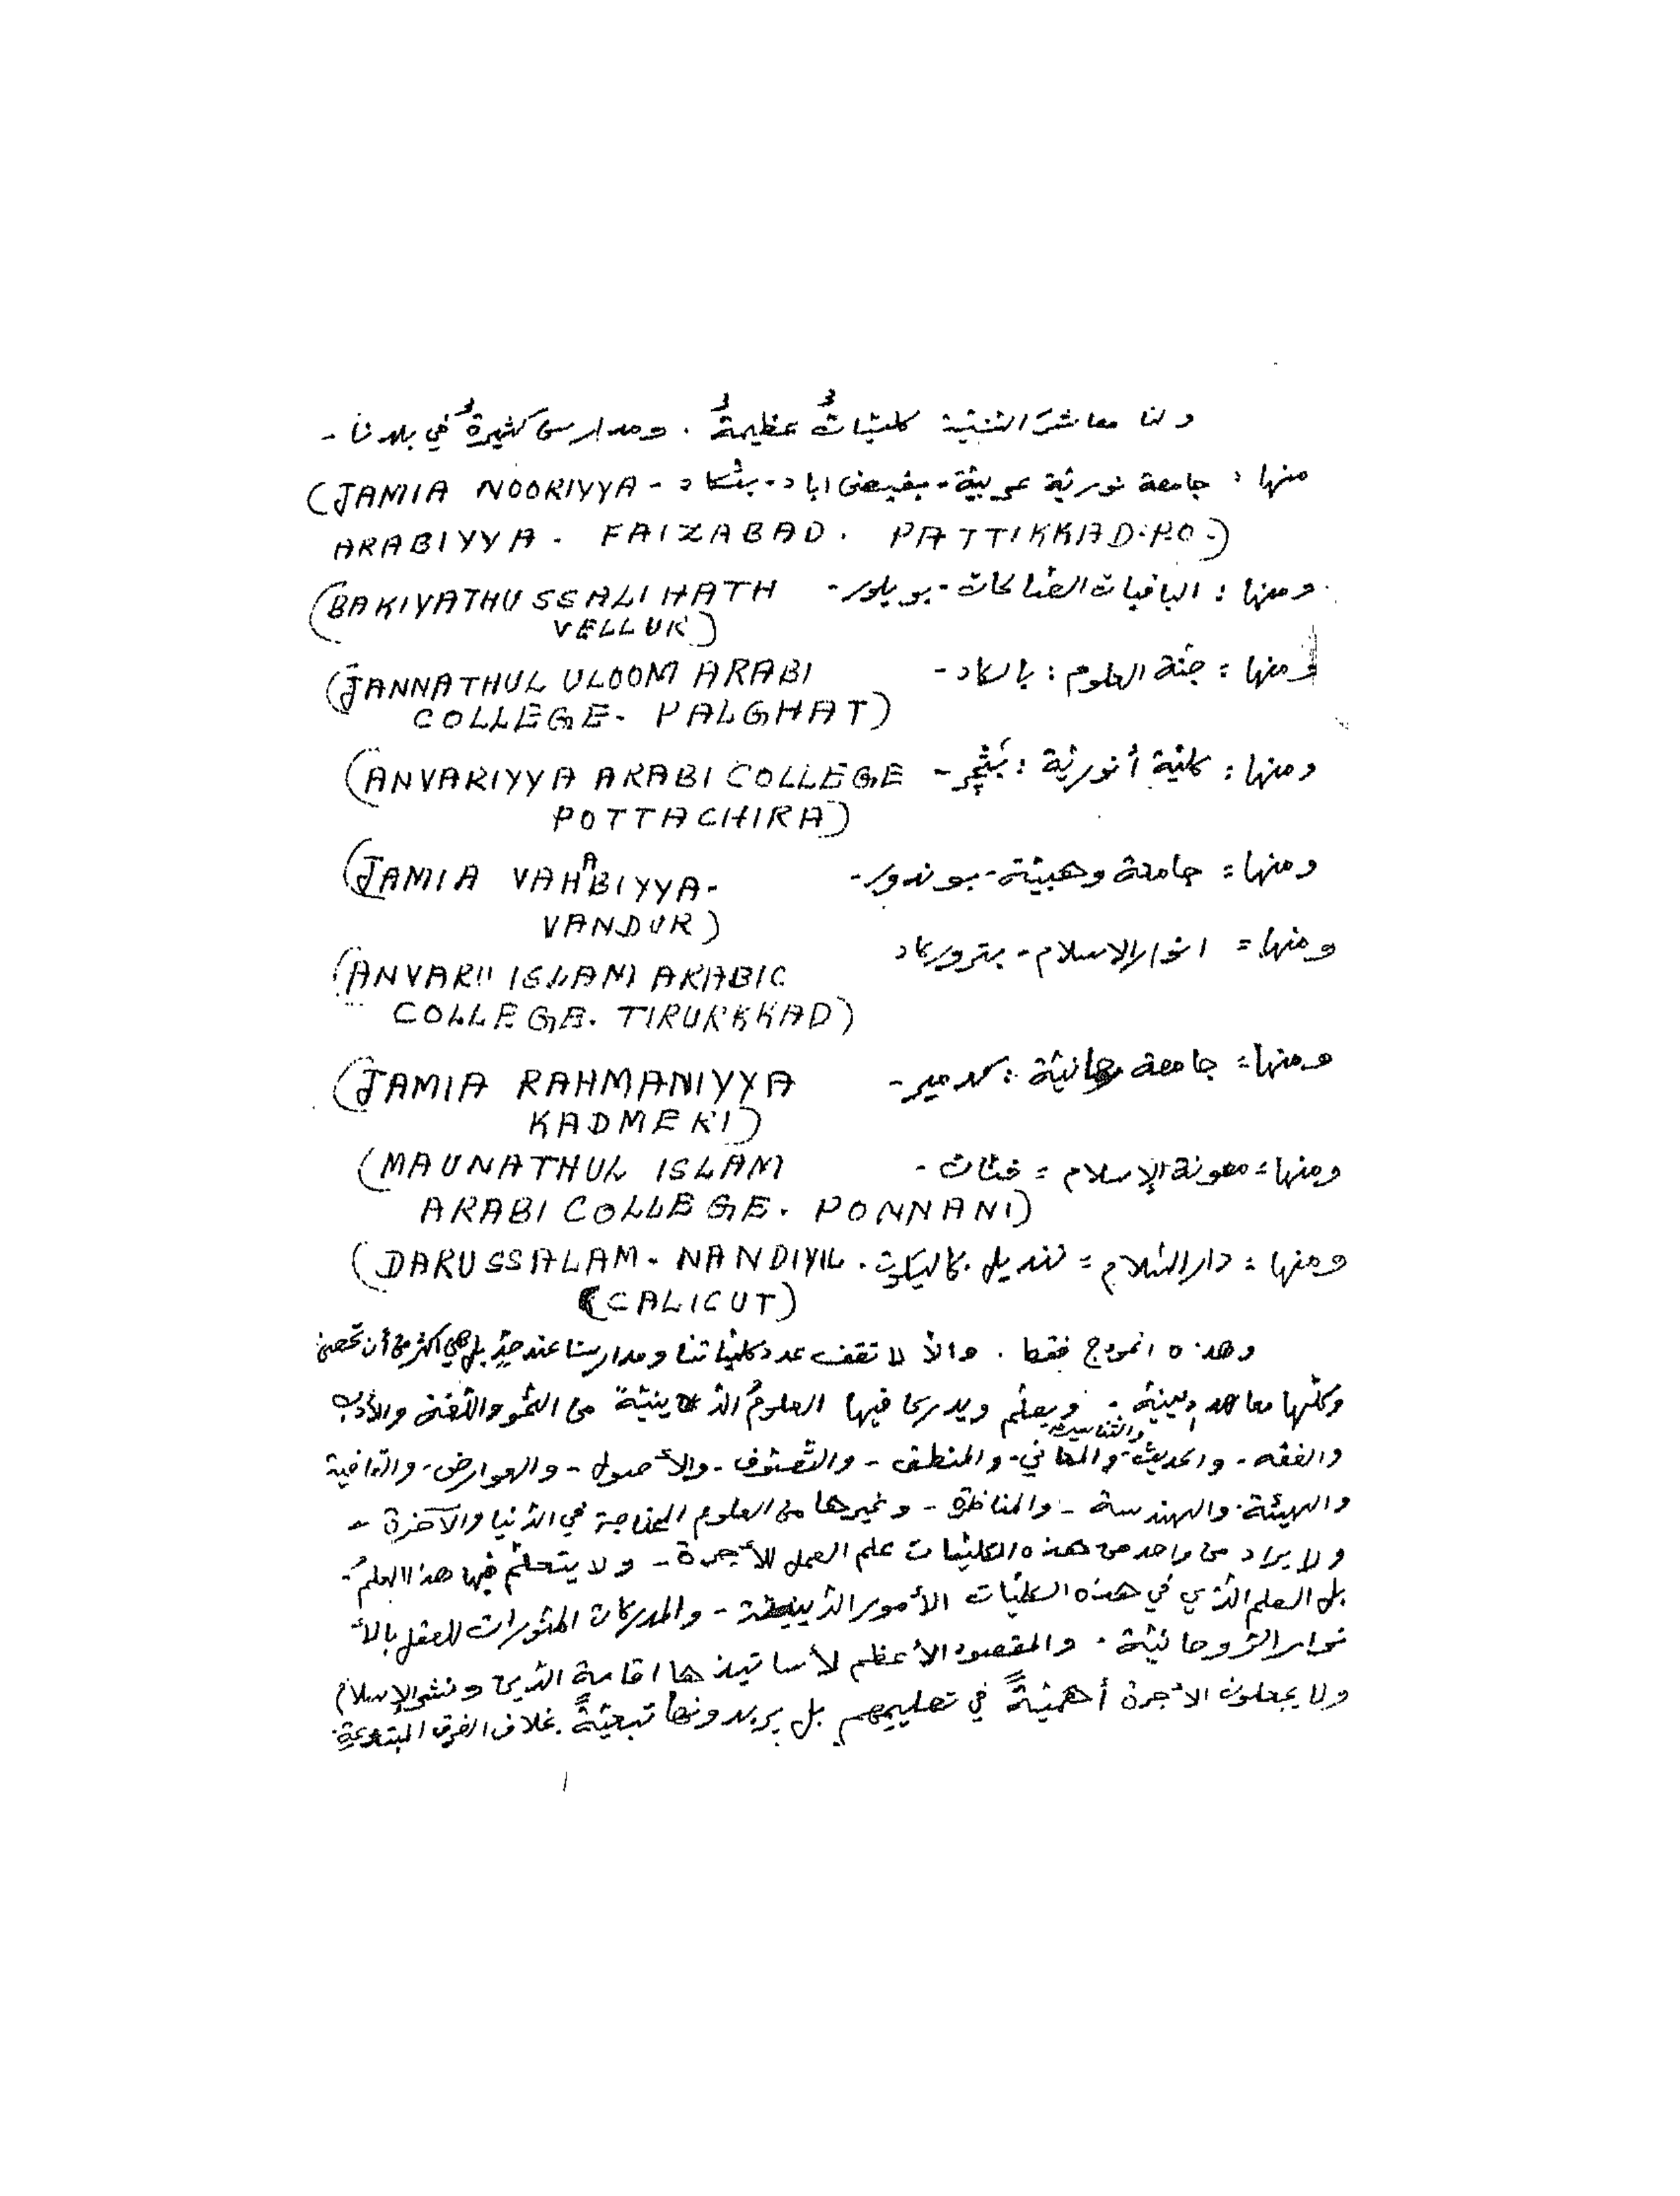 ولنا معاشرَ السّنّيّة كلّيّاتٌ عظيمةٌ . ومدارس كثيرةٌ في بلدنا -
منها : جامعة نوريّة عربيّة - بفيض اباد - بتّكاد - (JAMIA NOORIYYA
ARABIYYA - FAIZABAD . PATTIKKAD.PO.)
ومنها : الباقيات الصّالحات - بويلور - (BAKIYATHUSSALIHATH
VELLUR)
ومنها : جنّة العلوم : بالكاد - (JANNATHUL ULOOM ARABI
COLLEGE - PALGHAT)
ومنها : كلّيّة أنوريّة : بَتّچر - (ANVARIYYA ARABI COLLEGE
POTTACHIRA)
ومنها = جامعة وهبيّة - بوندور - (JAMIA VAHABIYYA -
VANDUR)
ومنها = انوار الاسلام - بتروركاد
(ANVARUL ISLAM ARABIC
COLLEGE. TIRURKKAD)
ومنها = جامعة رحمانيّة : كدمير - (JAMIA RAHMANIYYA
KADMERI)
ومنها = معونة الإسلام = فنّان - (MAUNATHUL ISLAM
ARABI COLLEGE. PONNANI)
ومنها = دار السّلام = نندیل . كاليكوت . (DARUSSALAM - NANDIYIL
(CALICUT)
وهذه انموذج فقط . والّا لا تقف عدد كلّيّاتنا ومدارسنا عند حدٍّ بل هي أكثر من أن تحصى
وكلّها معاهد دينيّة - ويعلّم ويدرس فيها العلومُ الدّينيّة من النّحو واللّغة والأدب
والفقه - والحديث والتّفاسير - والمعاني - والمنطق - والتّصوّف - والأصول - والعوارض - والقافية
والهيئة . والهندسة - والمناظرة - وغيرها من العلوم المحتاجة في الدّنيا والآخرة -
ولا يراد من واحد من هذه الكلّيّات علم العمل للأجرة - ولا يتعلّم فيها هذا العلمُ -
بل العلم الّذي في هذه الكلّيّات الأمور الدّينيّة - والمدركات المنوّرات للعقل بالأ
نوار الرّوحانيّة . والمقصود الأعظم لأساتيذها اقامة الدّين ونشر الإسلام
ولا يجعلون الأجرة أهمّيّةً في تعليمهم بل يريدونها تبعيّةً بخلاف الفرق المبتدعة